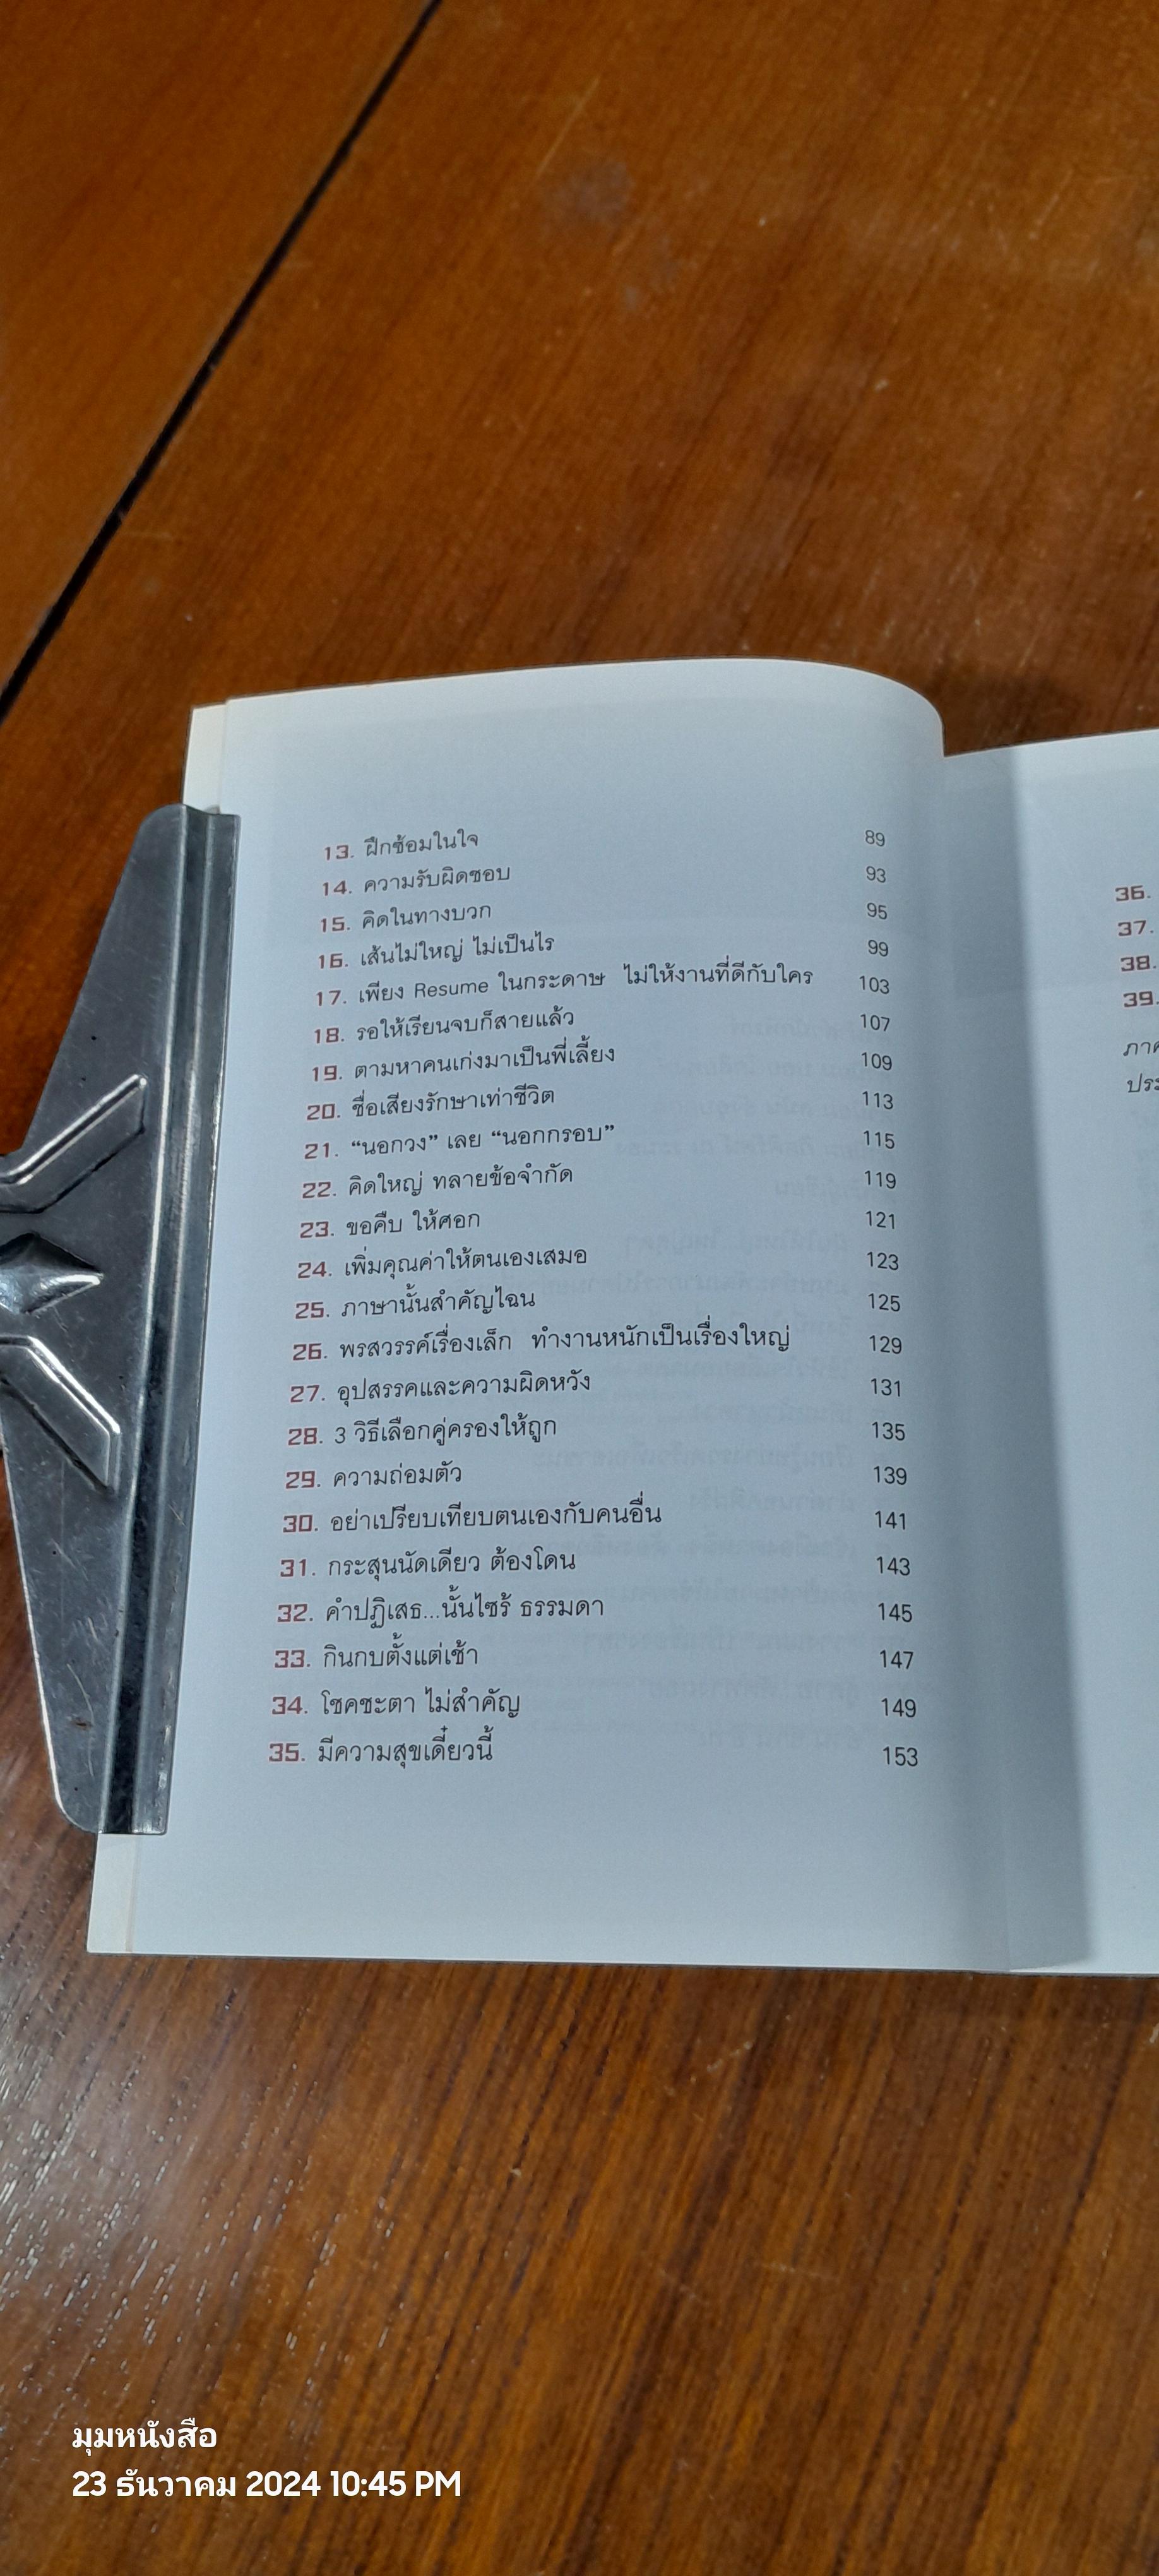 13. ฝึกซ้อมในใจ 89
14. ความรับผิดชอบ 93
15. คิดในทางบวก 95
16. เส้นไม่ใหญ่ ไม่เป็นไร 99
17. เพียง Resume ในกระดาษ ไม่ให้งานที่ดีกับใคร 103
18. รอให้เรียนจบก็สายแล้ว 107
19. ตามหาคนเก่งมาเป็นพี่เลี้ยง 109
20. ชื่อเสียงรักษาเท่าชีวิต 113
21. “นอกวง” เลย “นอกกรอบ” 115
22. คิดใหญ่ ทลายข้อจำกัด 119
23. ขอคืบ ให้ศอก 121
24. เพิ่มคุณค่าให้ตนเองเสมอ 123
25. ภาษานั้นสำคัญไฉน 125
26. พรสวรรค์เรื่องเล็ก ทำงานหนักเป็นเรื่องใหญ่ 129
27. อุปสรรคและความผิดหวัง 131
28. 3 วิธีเลือกคู่ครองให้ถูก 135
29. ความถ่อมตัว 139
30. อย่าเปรียบเทียบตนเองกับคนอื่น 141
31. กระสุนนัดเดียว ต้องโดน 143
32. คำปฏิเสธ...นั้นไซร้ ธรรมดา 145
33. กินกบตั้งแต่เช้า 147
34. โชคชะตา ไม่สำคัญ 149
35. มีความสุขเดี๋ยวนี้ 153
36.
37.
38.
39.
มุมหนังสือ
23 ธันวาคม 2024 10:45 PM